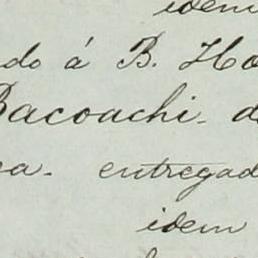 idem
do á B. Ho
Bacoachi. d
a. entregad
idem